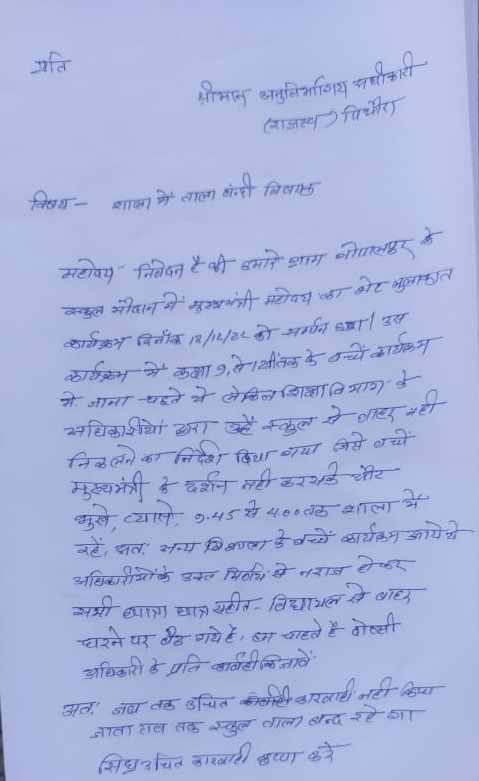 प्रति
श्रीमान अनुविभागिय अधीकारी
(राजस्व) पिथौरा
विषय - शाला में ताला बंदी बिषयक
महोदय निवेदन है की हमारे ग्राम गोपालपुर के
स्कूल मैदान में मुख्यमंत्री महोदय का भेंट मुलाकात
कार्यक्रम दिनाँक को सम्पन हुआ। उस
कार्यक्रम में कक्षा 9, से तक के बच्चें कार्यक्रम
में जाना चहते थे लेकिन शिक्षा विभाग के
अधिकारीयों द्वारा उन्हें स्कूल से बाहर नही
निकलने का निर्देश दिया गया जिसे बच्चें
मुख्यमंत्री के दर्शन नही करसके और
भुखे, प्यासे, 9.45 से 4.00 तक शाला में
रहें, अत. अन्य के बच्चें कार्यक्रम आये थे
अधिकारीयों के उक्त से नराज होकर
सभी छात्रा छात्र सहीत - विद्यालय से बाहर
धरने पर बैठ गये है, हम चाहते है दोष्सी
अधिकारी के प्रति कार्वाही कि जावें
अत: जब तक उचित कारवाही नही किया
जाता तब तक स्कूल ताला बन्द रहे गा
सिघ्र उचित कारवाही कृप्या करे